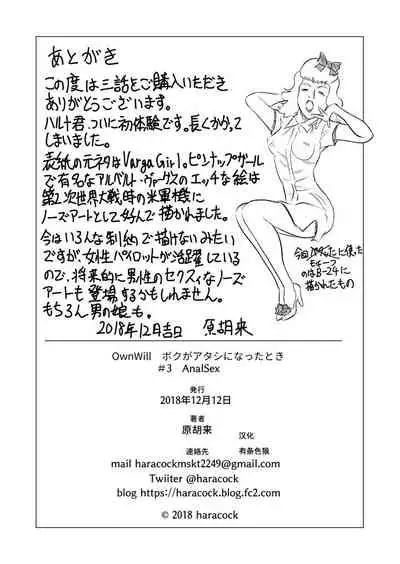 あとがき
この度は三話をご購入いただき
ありがとうございます。
ハルト君、ついに初体験です。長くかかって
しまいました。
表紙の元ネタはVarga Girl。ピンナップガール
で有名なアルベルト・ヴァーガスのエッチな絵は
第2次世界大戦時の米軍機に
ノーズアートとして好んで描かれました。
今はいろんな制約で描けないみたい
ですが、女性パイロットが活躍している
ので、将来的に男性のセクスィなノーズ
アートも登場するかもしれません。
もちろん男の娘も。
2018年12月吉日 原胡来
のはB-24に
描かれたもの
OwnWill ボクがアタシになったとき
#3 AnalSex
発行
2018年12月12日
著者
原胡来
汉化
有条色狼
連絡先
mail haracockmskt2249@gmail.com
Twiiter @haracock
blog https://haracock.blog.fc2.com
© 2018 haracock